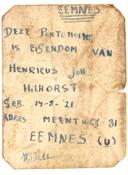 EEMNES.
DEZE PORTEMONNE
IS EIGENDOM VAN
HENRICUS JOH
HILHORST
GEB. 14-8-'21
ADRES. MEENTWEG 31
EEMNES (U)